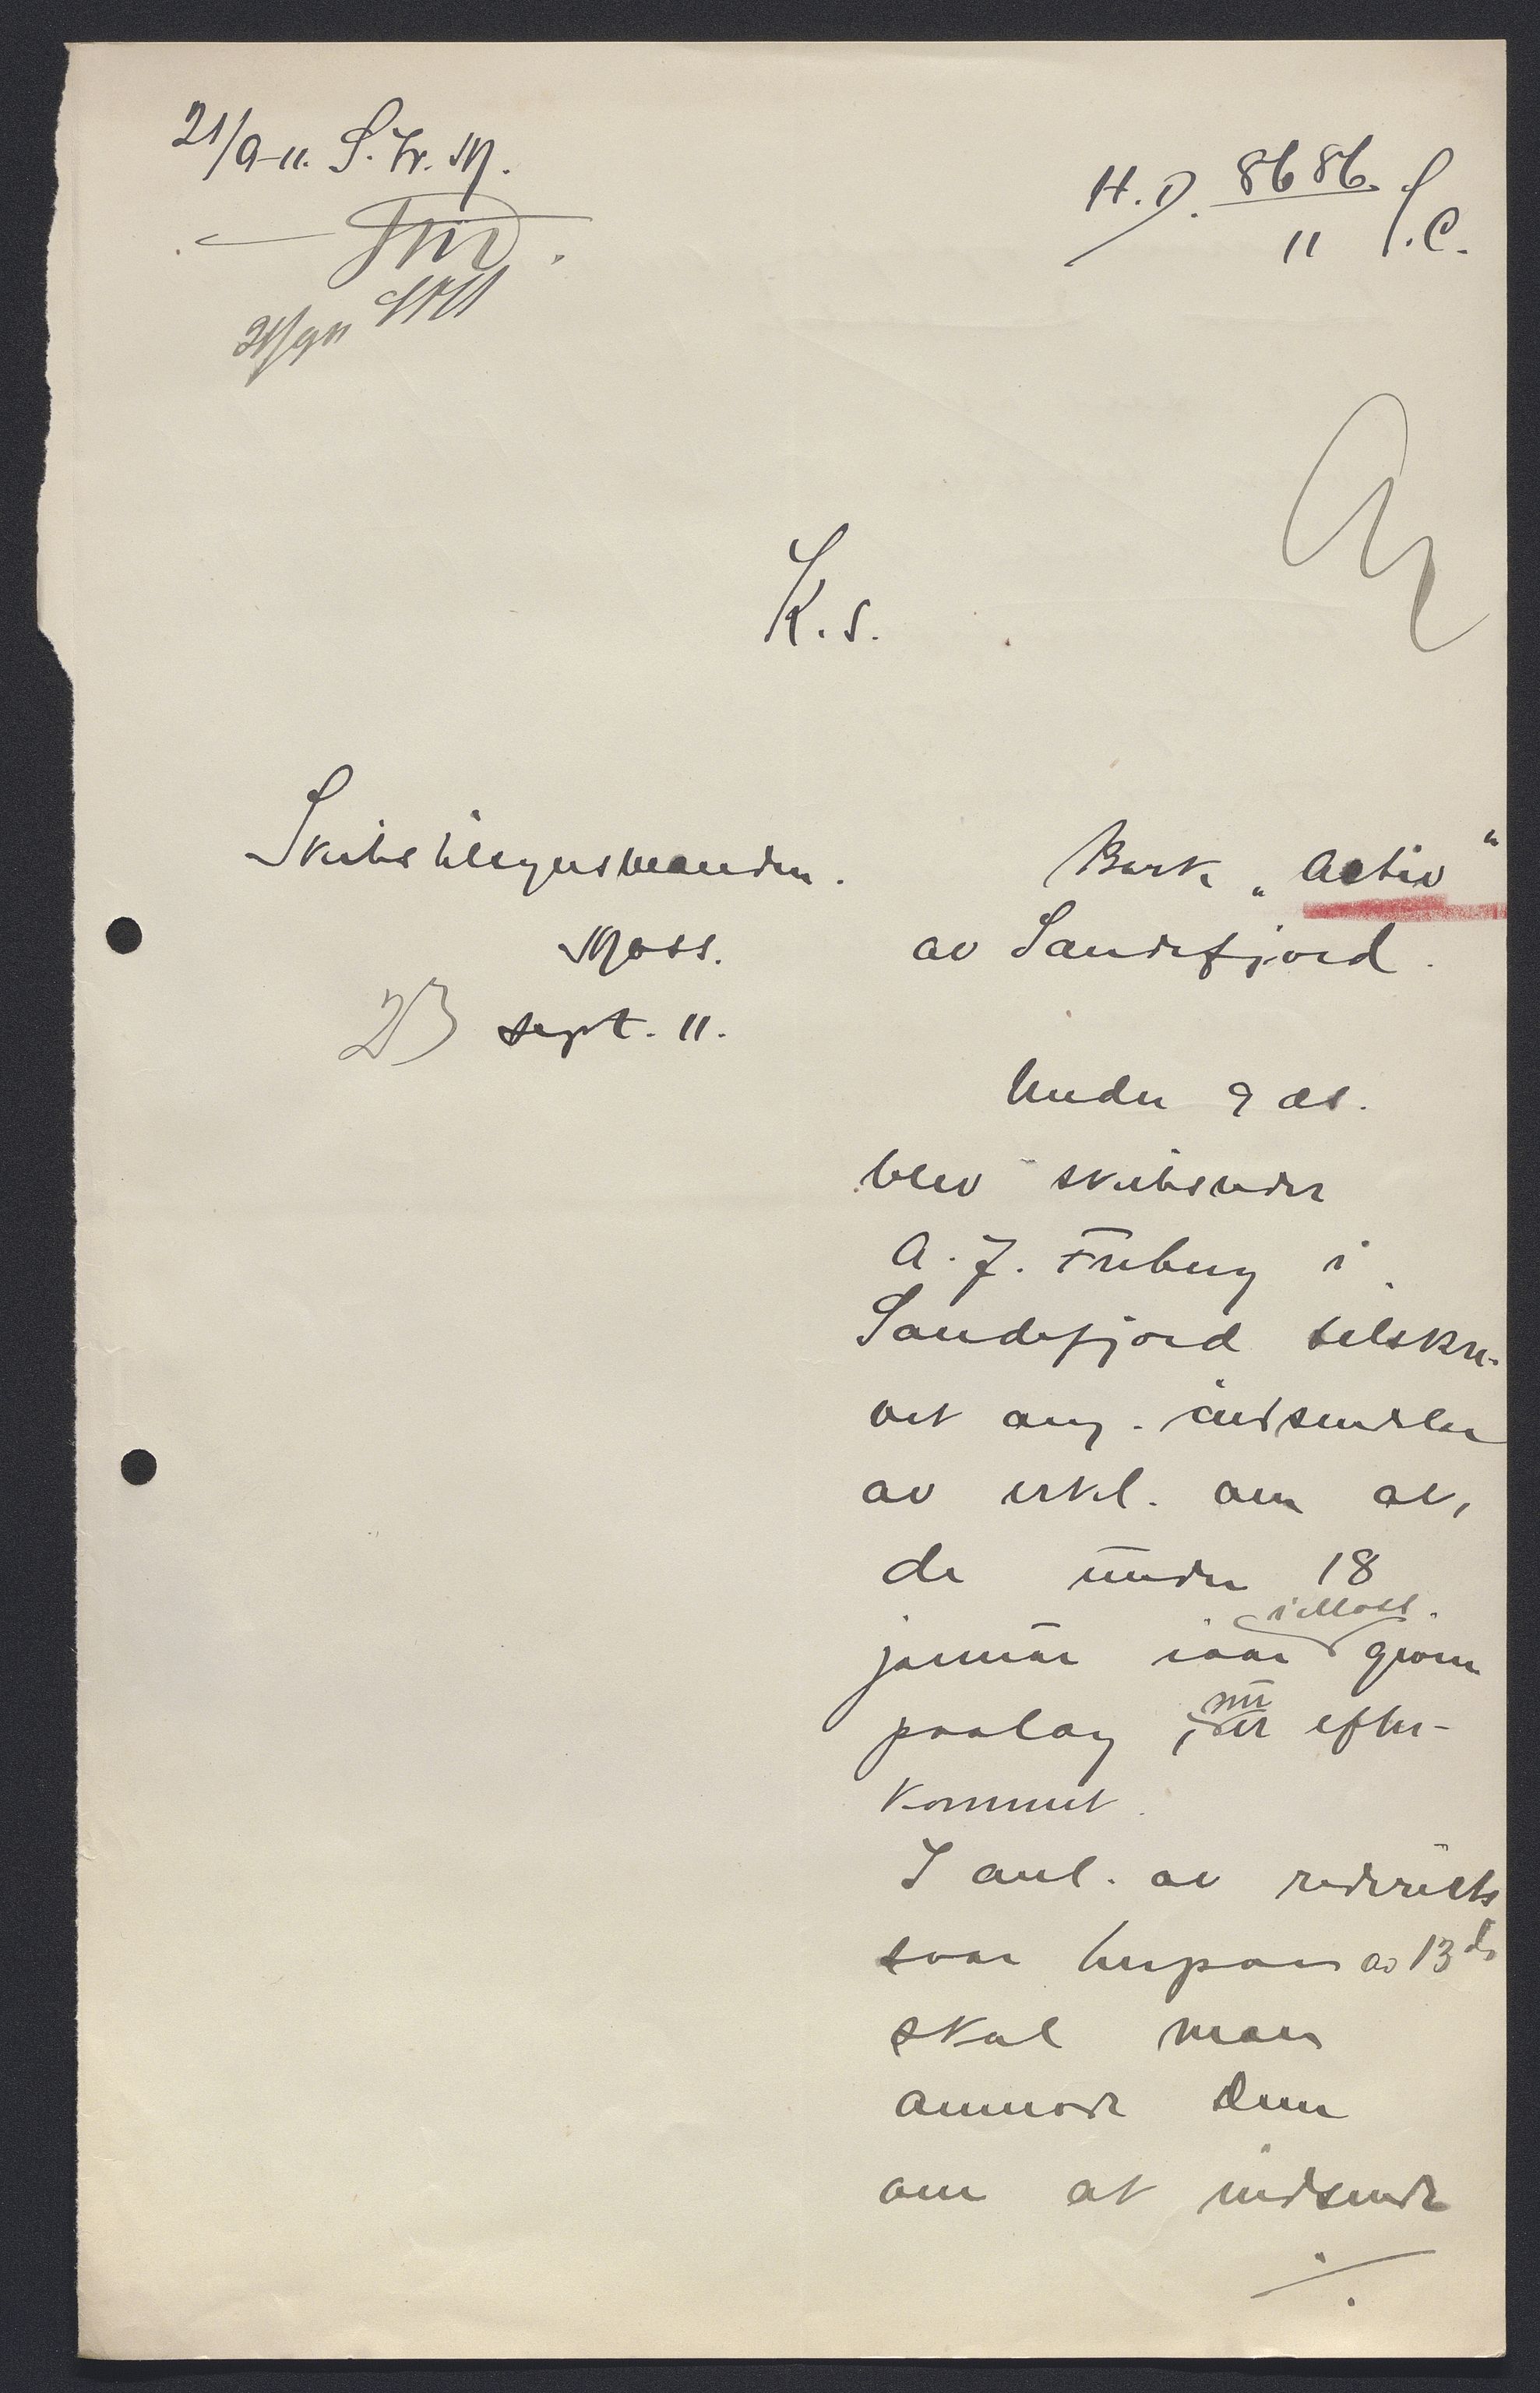 21/9-11. S. Fr. M.
H. D. 8686 / 11 S.C.
21/9 11
K. s.
Skibstilsynsmanden.
Moss.
23 sept. 11.
Bark „Activ"
av Sandefjord.
Under 9 ds.
blev skibsreder
A. J. Friberg i
Sandefjord tilskre-
vet ang. indsendelse
av erkl. om at,
de under 18
januar iaar i Moss givne
paalæg, nu er efter-
kommet.
I anl. av rederiets
svar herpaa av 13 ds
skal man
anmode Dem
om at indsende